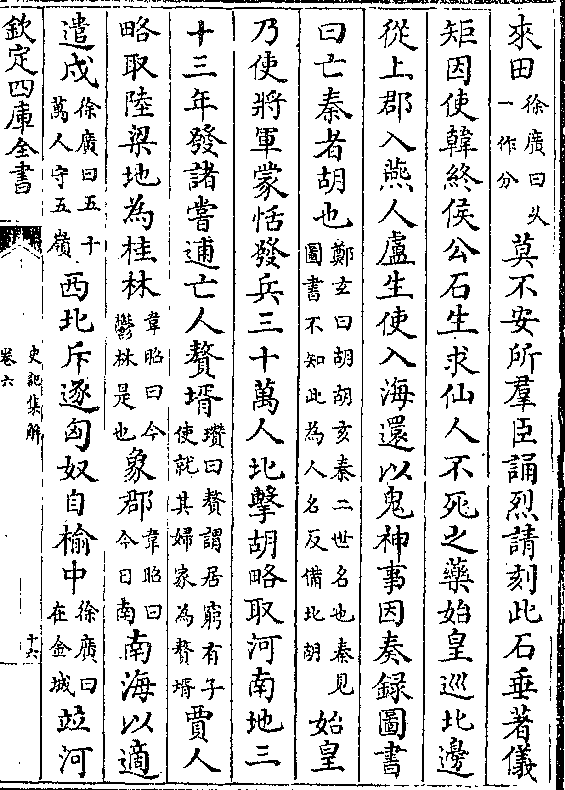 來田徐廣曰久一作分莫不安所羣臣誦烈請刻此石垂著儀
矩因使韓終侯公石生求仙人不死之藥始皇巡北邊
從上郡入燕人盧生使入海還以鬼神事因奏録圖書
曰亡秦者胡也鄭玄曰胡胡亥秦二世名也秦見圖書不知此為人名反備北胡始皇
乃使將軍蒙恬發兵三十萬人北擊胡略取河南地三
十三年發諸嘗逋亡人贅壻瓚曰贅謂居窮有子使就其婦家為贅壻賈人
略取陸梁地為桂林韋昭曰今鬱林是也象郡韋昭曰今日南南海以適
遣戍徐廣曰五十萬人守五嶺西北斥逐匈奴自榆中徐廣曰在金城並河
欽定四庫全書
史記集解
卷六
十六